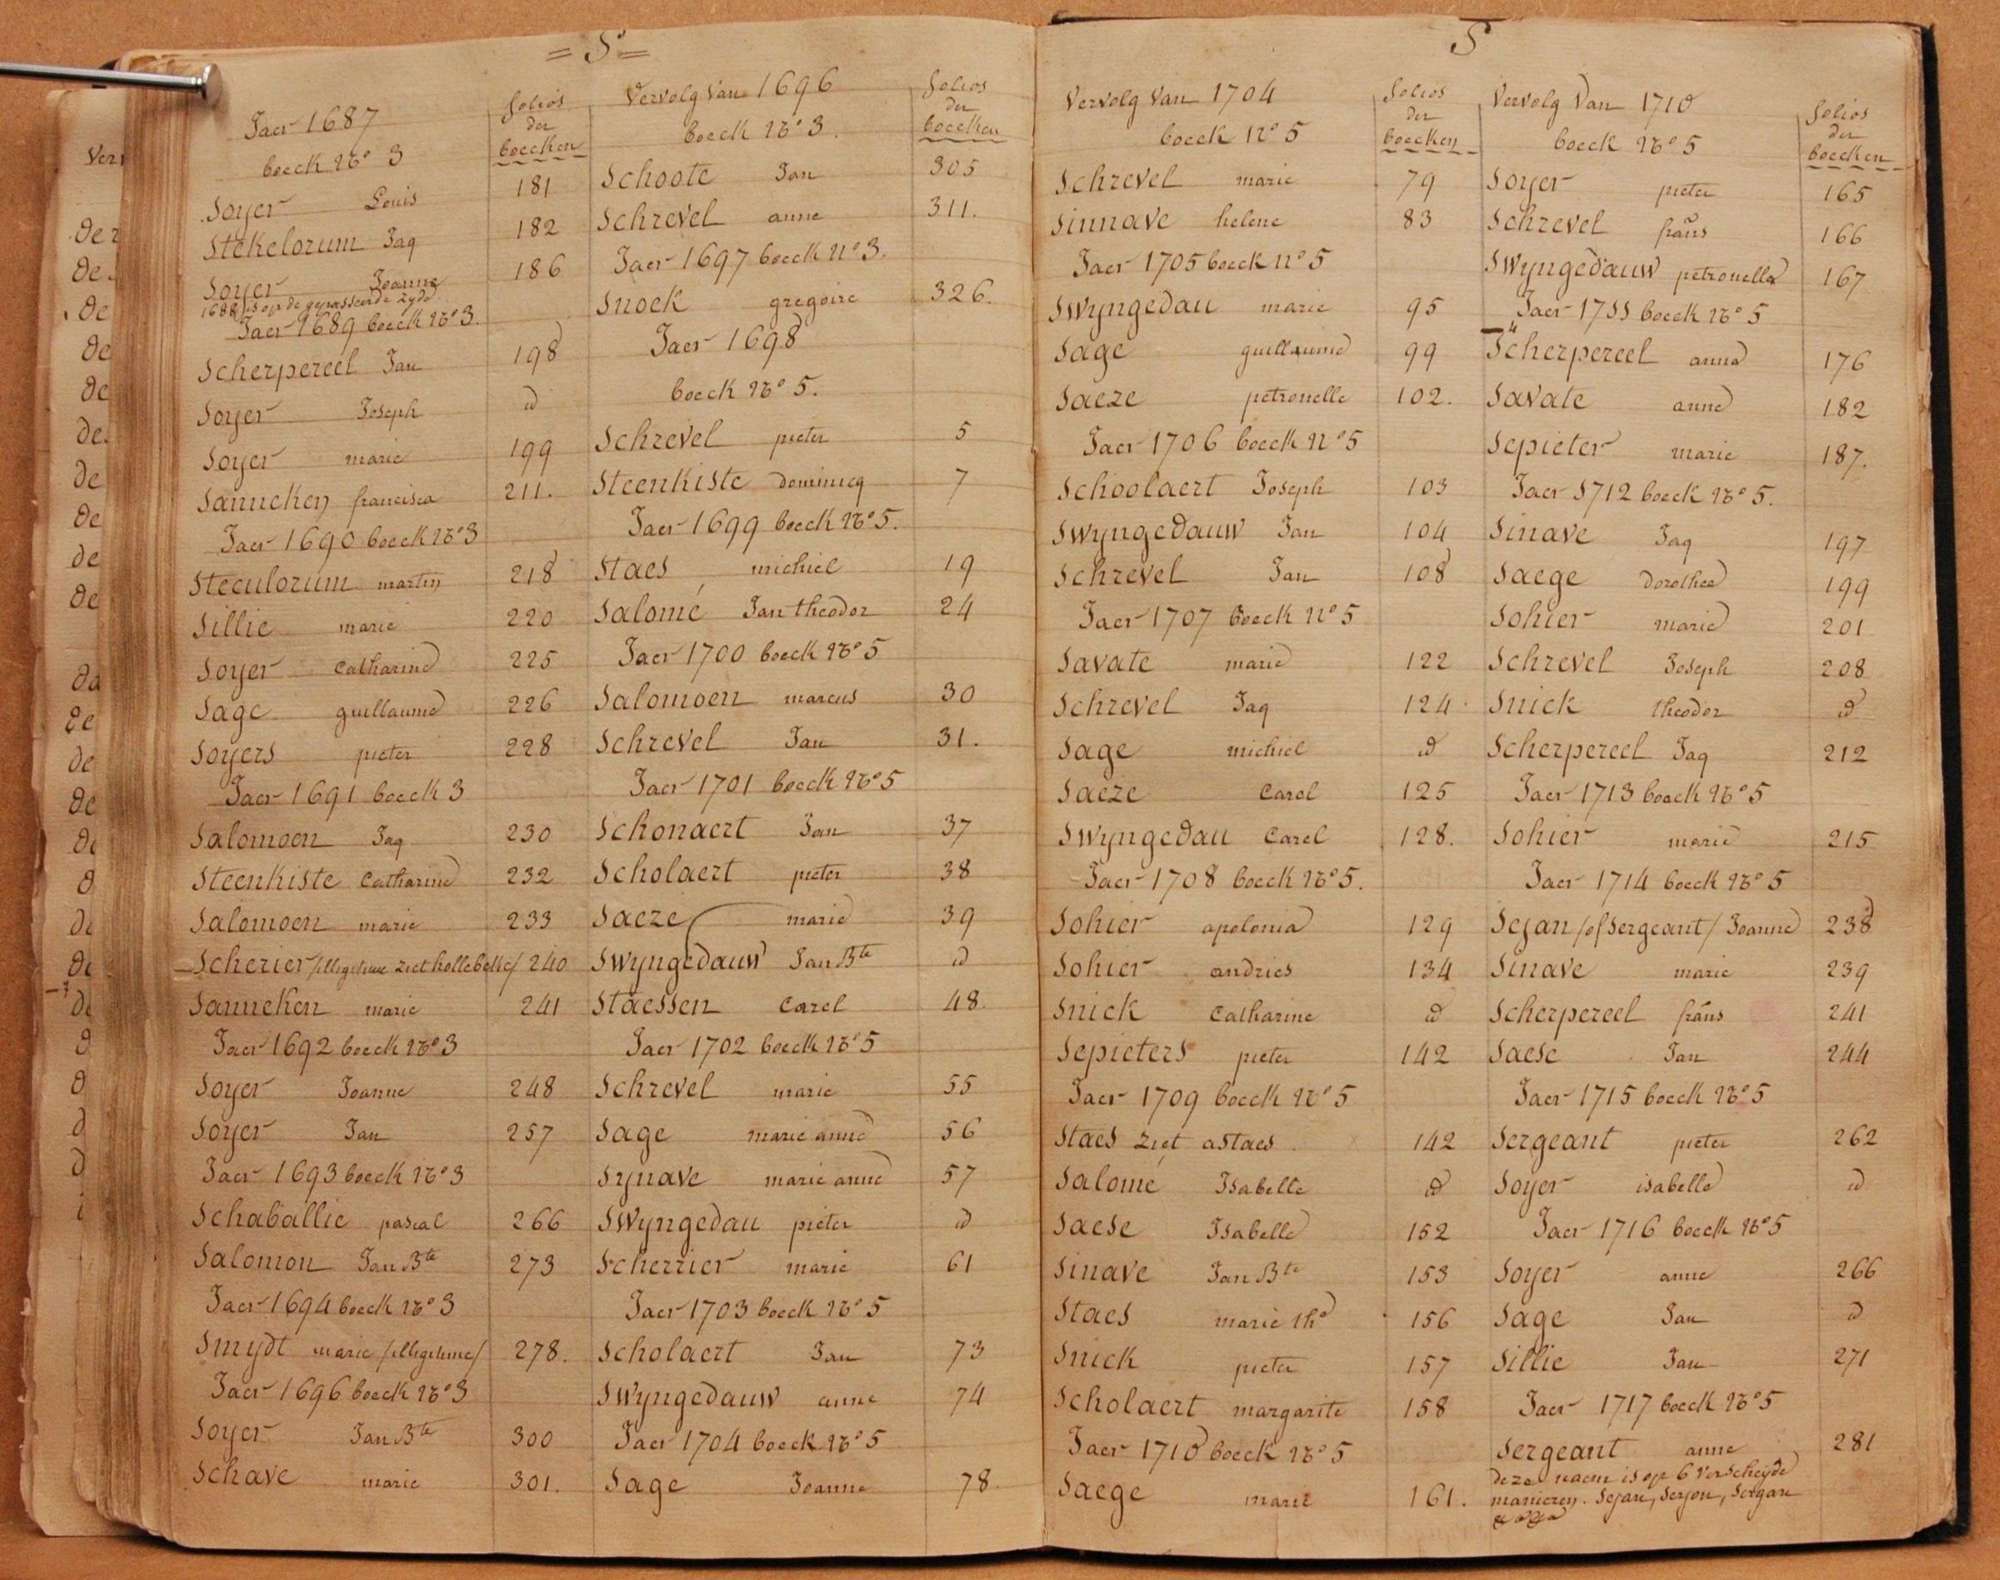 = S =
Jaer 1687
boeck No 3
folios
der
boecken
Soyer Louis 181
Stekelorum Jaq 182
Soyer Joanne 186
1688 is op de gepasseerde zyde
Jaer 1689 boeck No 3.
Scherpereel Jan 198
Soyer Joseph id
Soyer marie 199
Sanneken francisca 211.
Jaer 1690 boeck No 3
Steculorum martin 218
Sillie marie 220
Soyer Catharine 225
Sage guillaume 226
Soyers pieter 228
Jaer 1691 boeck 3
Salomoen Jaq 230
Steenkiste Catharine 232
Salomoen marie 233
Scherier /illegitime ziet hollebeke/ 240
Sanneken marie 241
Jaer 1692 boeck No 3
Soyer Joanne 248
Soyer Jan 257
Jaer 1693 boeck No 3
Schaballie pascal 266
Salomon Jan Bte 273
Jaer 1694 boeck No 3
Smydt marie /illegitime/ 278.
Jaer 1696 boeck No 3
Soyer Jan Bte 300
Schave marie 301.
Vervolg Van 1696
boeck No 3.
folios
der
boecken
Schoote Jan 305
Schrevel anne 311.
Jaer 1697 boeck No 3.
Snoek gregoire 326.
Jaer 1698
boeck No 5.
Schrevel pieter 5
Steenkiste dominicq 7
Jaer 1699 boeck No 5.
Staes michiel 19
Salomé Jan theodor 24
Jaer 1700 boeck No 5
Salomoen marcus 30
Schrevel Jan 31.
Jaer 1701 boeck No 5
Schonaert Jan 37
Scholaert pieter 38
Saeze marie 39
Swyngedauw Jan Bte id
Staessen Carel 48.
Jaer 1702 boeck No 5
Schrevel marie 55
Sage marie anne 56
Synave marie anne 57
Swyngedau pieter id
Scherrier marie 61
Jaer 1703 boeck No 5
Scholaert Jan 73
Swyngedauw anne 74
Jaer 1704 boeck No 5
Sage Joanne 78.
S
Vervolg Van 1704
boeck No 5
folios
der
boecken
Schrevel marie 79
Sinnave helene 83
Jaer 1705 boeck No 5
Swyngedau marie 95
Sage guillaume 99
Saeze petronelle 102.
Jaer 1706 boeck No 5
Schoolaert Joseph 103
Swyngedauw Jan 104
Schrevel Jan 108
Jaer 1707 boeck No 5
Savate marie 122
Schrevel Jaq 124
Sage michiel id
Saeze Carol 125
Swyngedau Carel 128.
Jaer 1708 boeck No 5.
Sohier apolonia 129
Sohier andries 134
Snick Catharine id
Sepieters pieter 142
Jaer 1709 boeck No 5
Staes ziet astaes 142
Salomé Isabelle id
Saese Isabelle 152
Sinave Jan Bte 153
Staes marie the 156
Snick pieter 157
Scholaert margarite 158
Jaer 1710 boeck No 5
Saege marie 161.
Vervolg Van 1710
boeck No 5
folios
der
boecken
Soyer pieter 165
Schrevel frans 166
Swyngedauw petronella 167
Jaer 1711 boeck No 5
Scherpereel anna 176
Savate anne 182
Sepieter marie 187.
Jaer 1712 boeck No 5.
Sinave Jaq 197
Saege dorothea 199
Sohier marie 201
Schrevel Joseph 208
Snick theodor id
Scherpereel Jaq 212
Jaer 1713 boeck No 5
Sohier marie 215
Jaer 1714 boeck No 5
Sejan /of Sergeant/ Joanne 238
Sinave marie 239
Scherpereel frans 241
Saese Jan 244
Jaer 1715 boeck No 5
Sergeant pieter 262
Soyer isabelle id
Jaer 1716 boeck No 5
Soyer anne 266
Sage Jan id
Sillie Jan 271
Jaer 1717 boeck No 5
Sergeant anne 281
deze naem is op 6 verscheyde
manieren. Sejan, Serjon, Sergan